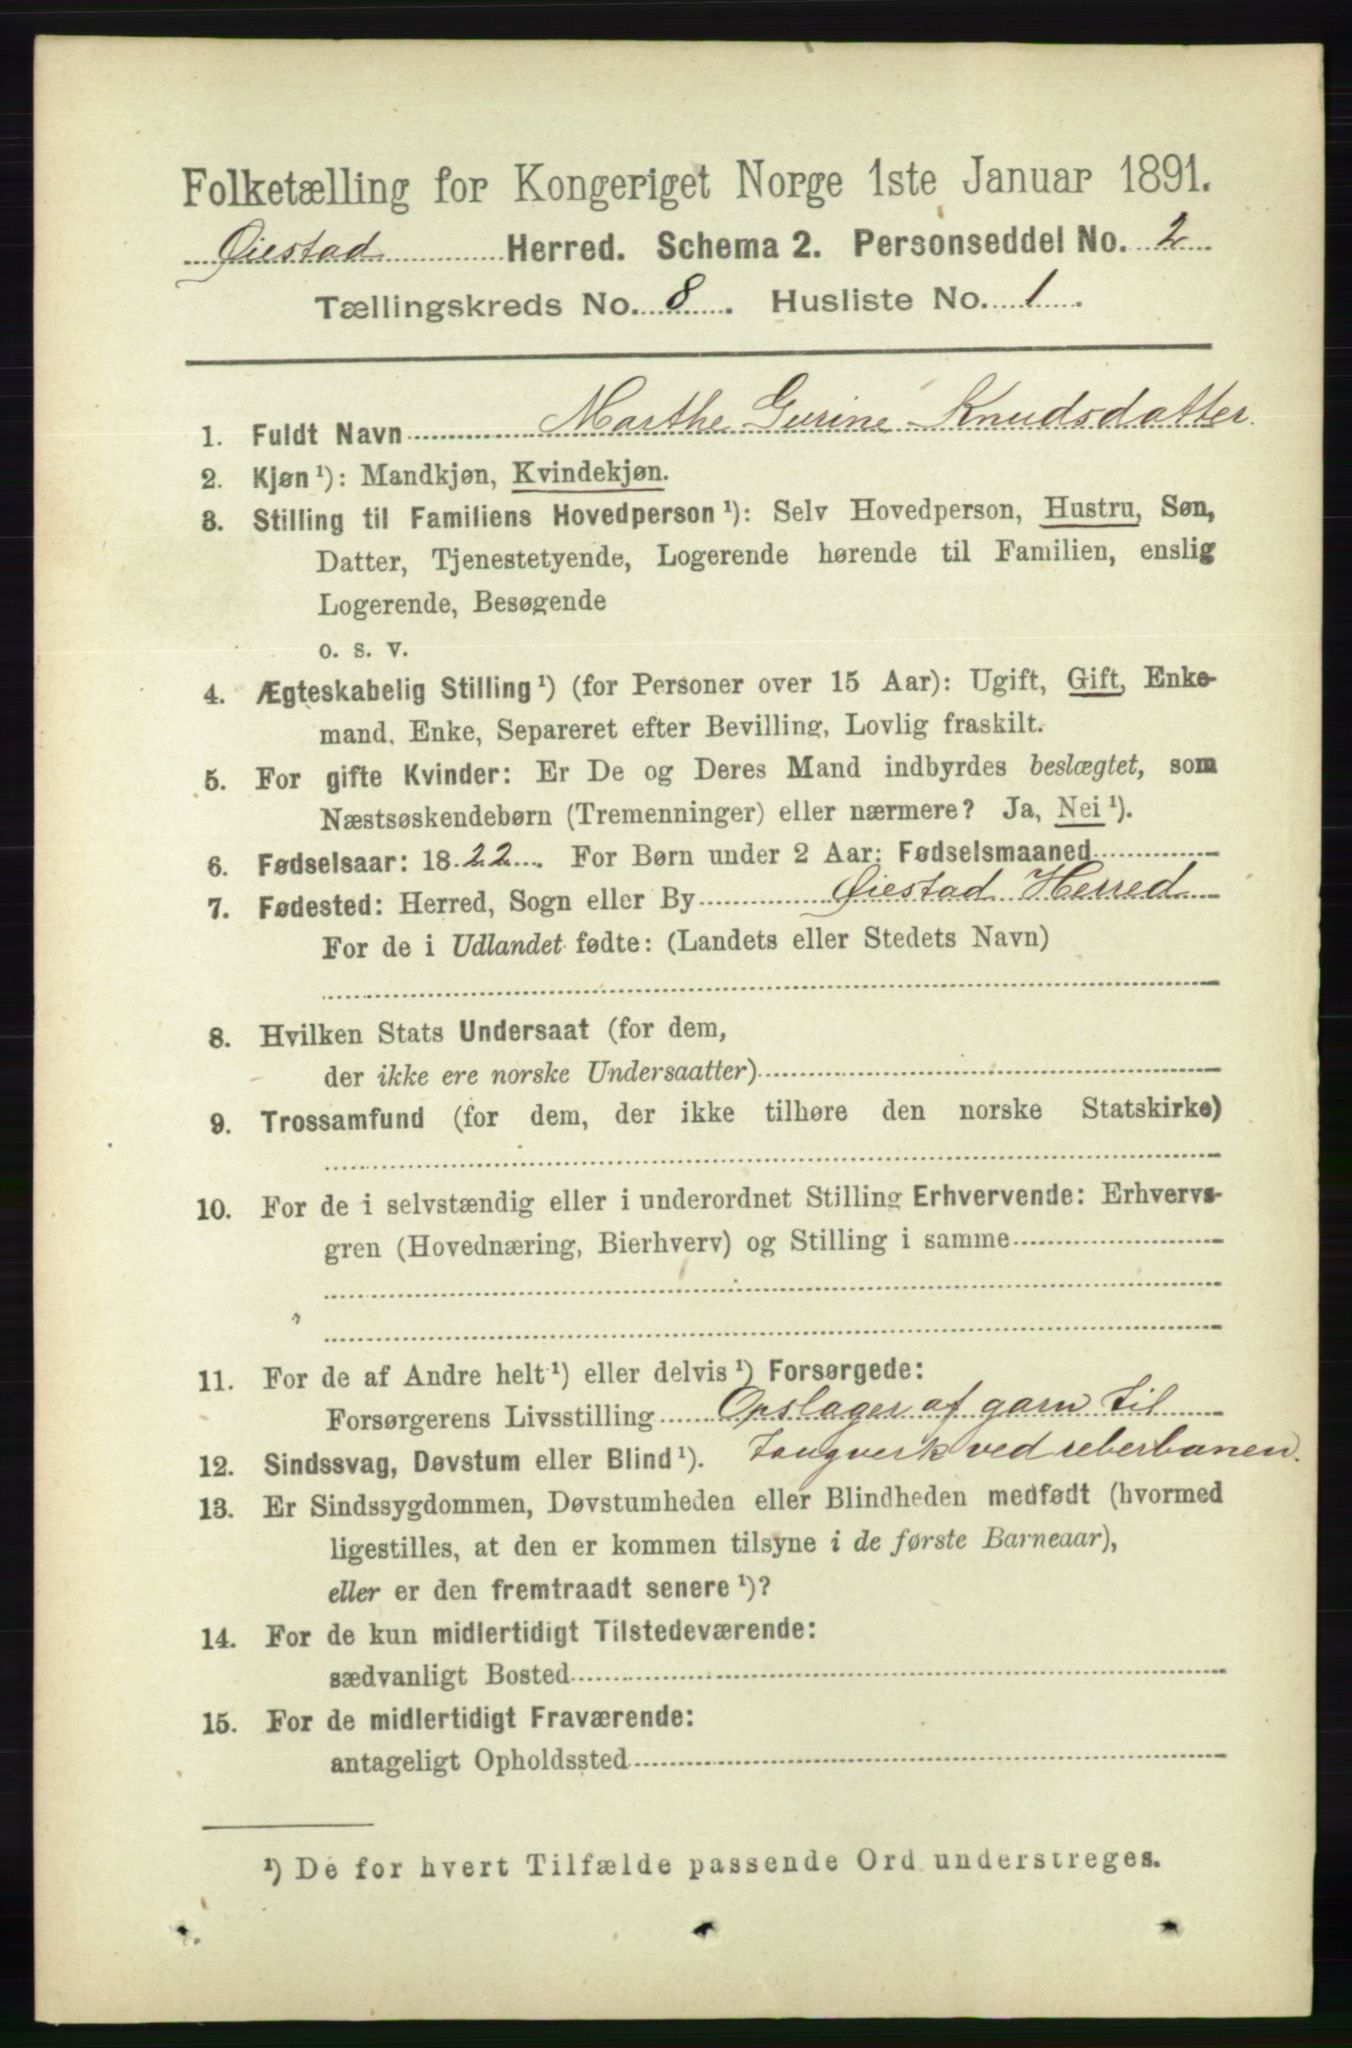 Folketælling for Kongeriget Norge 1ste Januar 1891.
Øiestad Herred. Schema 2. Personseddel No. 2
Tællingskreds No. 8. Husliste No. 1.
1. Fuldt Navn Marthe Gurine Knudsdatter.
2. Kjøn ¹): Mandkjøn, Kvindekjøn.
3. Stilling til Familiens Hovedperson ¹): Selv Hovedperson, Hustru, Søn,
Datter, Tjenestetyende, Logerende hørende til Familien, enslig
Logerende, Besøgende
o. s. v.
4. Ægteskabelig Stilling ¹) (for Personer over 15 Aar): Ugift, Gift, Enke-
mand, Enke, Separeret efter Bevilling, Lovlig fraskilt.
5. For gifte Kvinder: Er De og Deres Mand indbyrdes beslægtet, som
Næstsøskendebørn (Tremenninger) eller nærmere? Ja, Nei ¹).
6. Fødselsaar: 1822. For Børn under 2 Aar: Fødselsmaaned
7. Fødested: Herred, Sogn eller By Øiestad Herred
For de i Udlandet fødte: (Landets eller Stedets Navn)
8. Hvilken Stats Undersaat (for dem,
der ikke ere norske Undersaatter)
9. Trossamfund (for dem, der ikke tilhøre den norske Statskirke)
10. For de i selvstændig eller i underordnet Stilling Erhvervende: Erhvervs-
gren (Hovednæring, Bierhverv) og Stilling i samme
11. For de af Andre helt ¹) eller delvis ¹) Forsørgede:
Forsørgerens Livsstilling Opslager af garn til
12. Sindssvag, Døvstum eller Blind ¹). Tougverk ved reberbanen.
13. Er Sindssygdommen, Døvstumheden eller Blindheden medfødt (hvormed
ligestilles, at den er kommen tilsyne i de første Barneaar),
eller er den fremtraadt senere ¹)?
14. For de kun midlertidigt Tilstedeværende:
sædvanligt Bosted
15. For de midlertidigt Fraværende:
antageligt Opholdssted
¹) De for hvert Tilfælde passende Ord understreges.